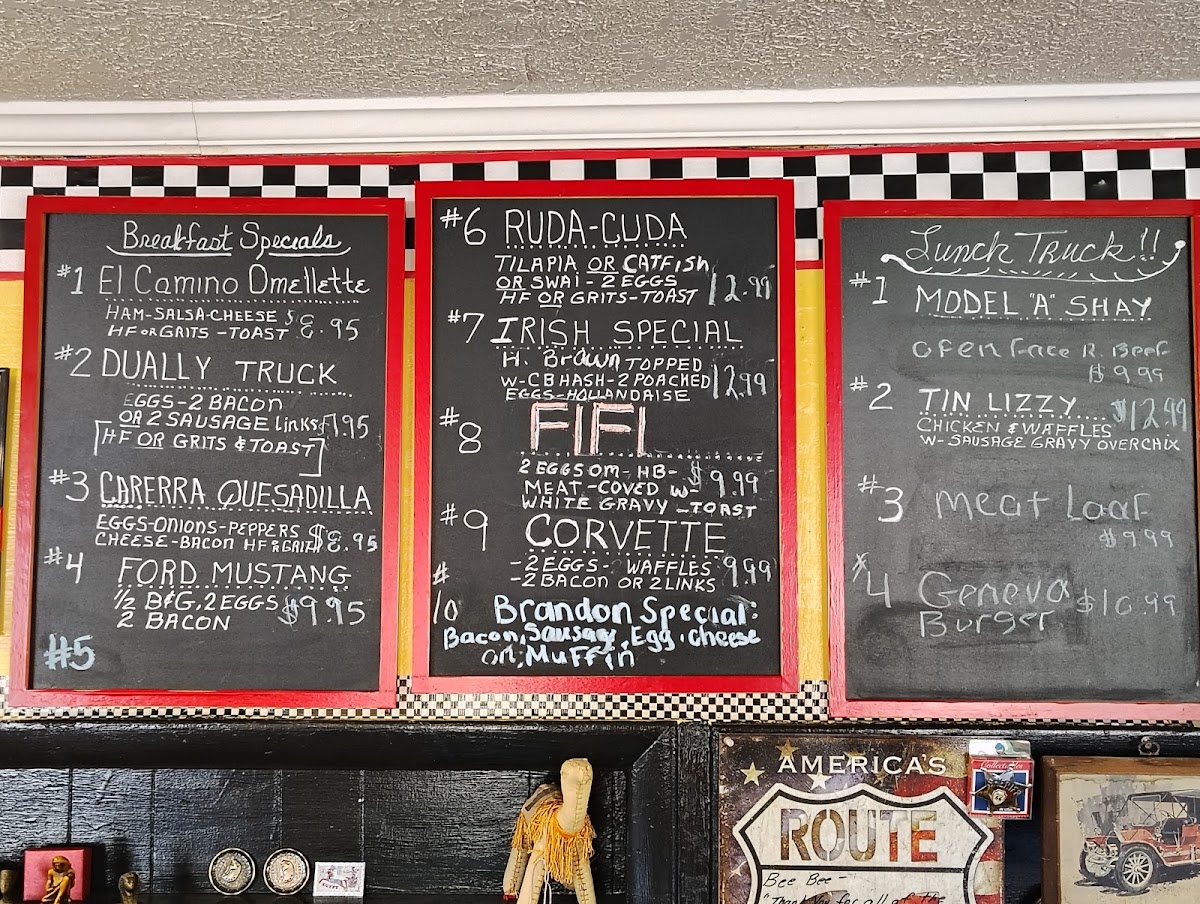 Breakfast Specials
#1 El Camino Omellette
HAM-SALSA-CHEESE $8.95
HF OR GRITS - TOAST
#2 DUALLY TRUCK
EGGS-2 BACON
OR 2 SAUSAGE Links $7.95
[HF OR GRITS & TOAST]
#3 CARERRA QUESADILLA
EGGS-ONIONS-PEPPERS $8.95
CHEESE-BACON HF OR GRITS
#4 FORD MUSTANG
1/2 B&G, 2 EGGS $9.95
2 BACON
#5
#6 RUDA-CUDA
TILAPIA OR CATFISH
OR SWAI - 2 EGGS 12.99
HF OR GRITS-TOAST
#7 IRISH SPECIAL
H. Brown TOPPED
W-CB HASH-2 POACHED 12.99
EGGS-HOLLANDAISE
#8 FIFI
2 EGGS OM-HB- $9.99
MEAT-COVED W-
WHITE GRAVY -TOAST
#9 CORVETTE
-2 EGGS- WAFFLES 9.99
-2 BACON OR 2 LINKS
#10 Brandon Special:
Bacon, Sausage, Egg, cheese
on; Muffin
Lunch Truck!!
#1 MODEL "A" SHAY
open face R. Beef
$9.99
#2 TIN LIZZY $12.99
CHICKEN & WAFFLES
W-SAUSAGE GRAVY OVER CHIX
#3 meat Loaf
$9.99
#4 Geneva $10.99
Burger
AMERICA'S
ROUTE
Bee Bee-
"Thank You for all of the